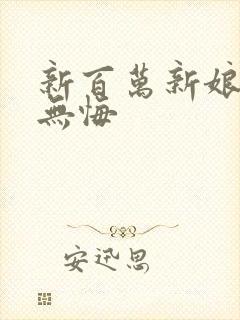 新百萬新娘
無悔
安迅思